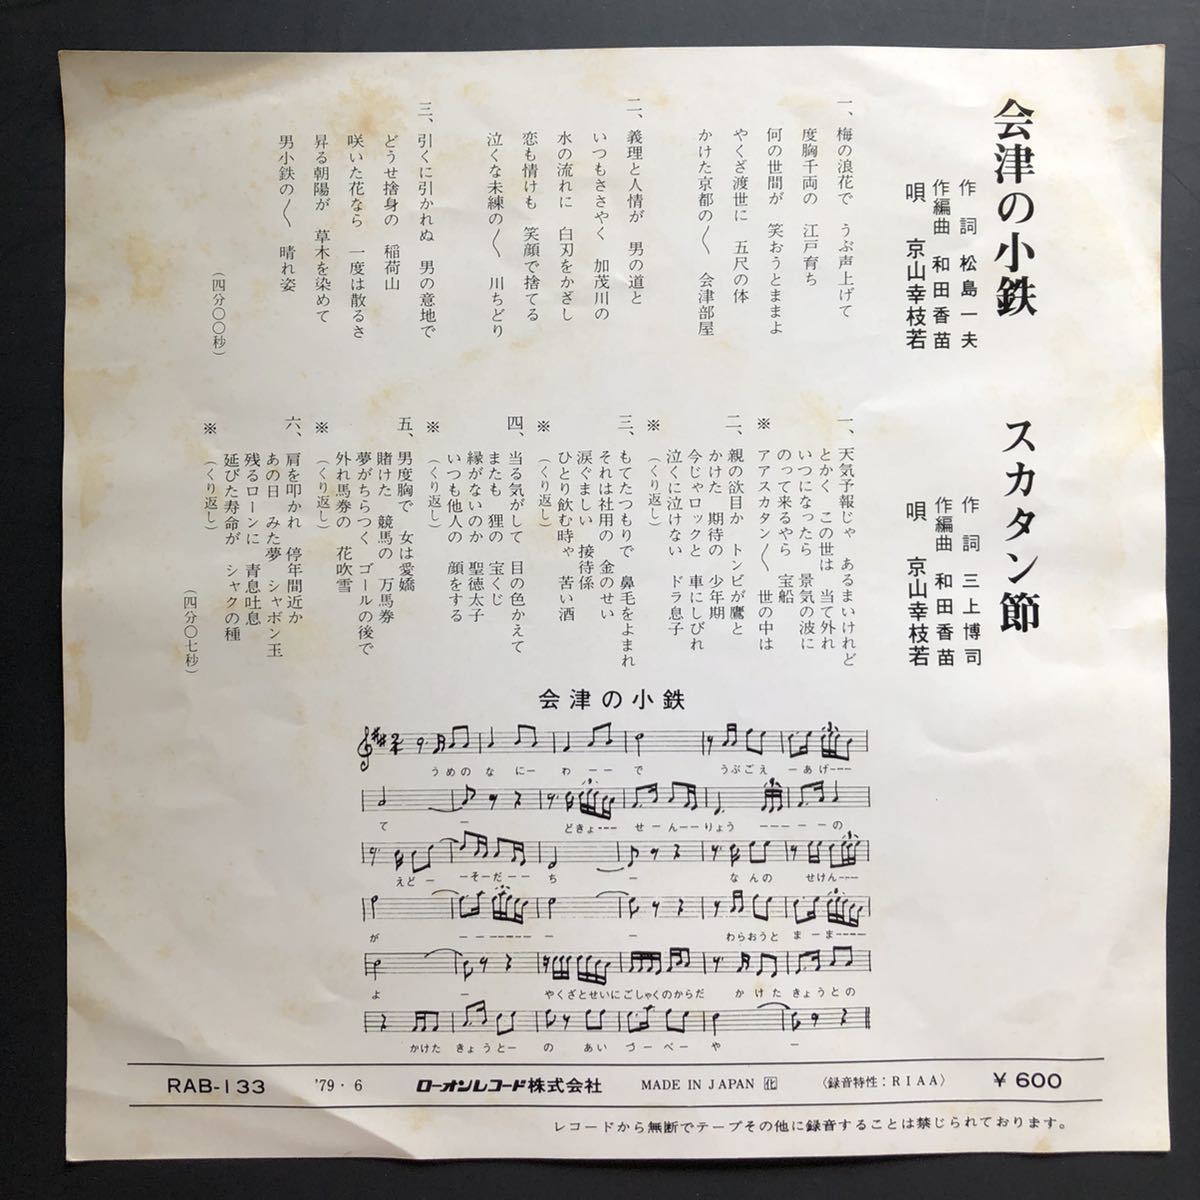 会津の小鉄
作詞 松島一夫
作編曲 和田香苗
唄 京山幸枝若
一、梅の浪花で うぶ声上げて
度胸千両の 江戸育ち
何の世間が 笑おうとままよ
やくざ渡世に 五尺の体
かけた京都の〱 会津部屋
二、義理と人情が 男の道と
いつもささやく 加茂川の
水の流れに 白刃をかざし
恋も情けも 笑顔で捨てる
泣くな未練の〱 川ちどり
三、引くに引かれぬ 男の意地で
どうせ捨身の 稲荷山
咲いた花なら 一度は散るさ
昇る朝陽が 草木を染めて
男小鉄の〱 晴れ姿
(四分〇〇秒)
スカタン節
作詞 三上博司
作編曲 和田香苗
唄 京山幸枝若
一、天気予報じゃ あるまいけれど
とかく この世は 当て外れ
いつになったら 景気の波に
のって来るやら 宝船
※ アアスカタン〱 世の中は
二、親の欲目か トンビが鷹と
かけた 期待の 少年期
今じゃロックと 車にしびれ
泣くに泣けない ドラ息子
※ (くり返し)
三、もてたつもりで 鼻毛をよまれ
それは社用の 金のせい
涙ぐましい 接待係
ひとり飲む時ゃ 苦い酒
※ (くり返し)
四、当る気がして 目の色かえて
またも 狸の 宝くじ
縁がないのか 聖徳太子
いつも他人の 顔をする
※ (くり返し)
五、男度胸で 女は愛嬌
賭けた 競馬の 万馬券
夢がちらつく ゴールの後で
外れ馬券の 花吹雪
※ (くり返し)
六、肩を叩かれ 停年間近か
あの日 みた夢 シャボン玉
残るローンに 青息吐息
延びた寿命が シャクの種
※ (くり返し)
(四分〇七秒)
会津の小鉄
うめの なに― わ ― ― で うぶごえ ―あげ---
て ― どきょ--- せ―ん--りょう -----の
えど― ―そ―だ--- ち ― なんの せけん---
が --------- ― わらおうと ま―ま----
よ ― やくざとせいにごしゃくのからだ かけた きょうとの
かけた きょうと― の あい づ―べ― や ―
RAB-133 '79・6 ローオンレコード株式会社 MADE IN JAPAN 化 〈録音特性:RIAA〉 ¥600
レコードから無断でテープその他に録音することは禁じられております。